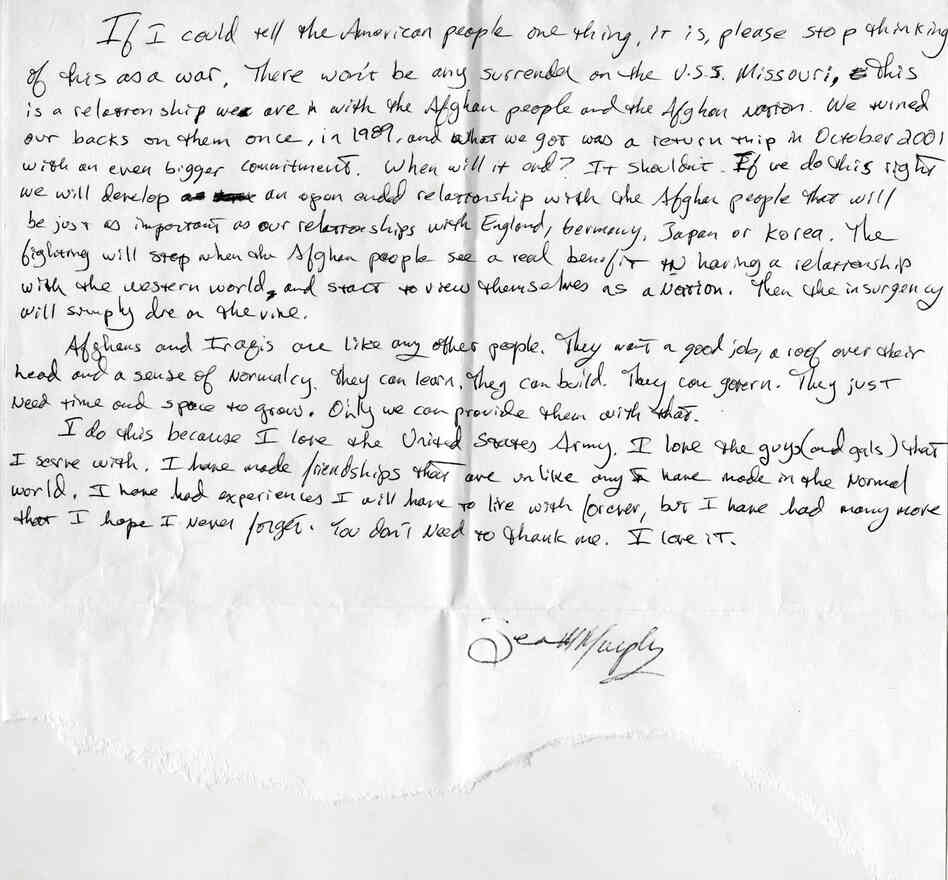 If I could tell the American people one thing, it is, please stop thinking
of this as a war. There won't be any surrender on the U.S.S. Missouri, this
is a relationship we are in with the Afghan people and the Afghan Nation. We turned
our backs on them once, in 1989, and what we got was a return trip in October 2001
with an even bigger commitment. When will it end? It shouldn't. If we do this right
we will develop an open ended relationship with the Afghan people that will
be just as important as our relationships with England, Germany, Japan or Korea. The
fighting will stop when the Afghan people see a real benefit in having a relationship
with the western world, and start to view themselves as a Nation. Then the insurgency
will simply die on the vine.
Afghans and Iraqis are like any other people. They want a good job, a roof over their
head and a sense of Normalcy. They can learn, they can build. They can govern. They just
Need time and space to grow. Only we can provide them with that.
I do this because I love the United States Army. I love the guys (and gals) that
I serve with. I have made friendships that are unlike any I have made in the Normal
world. I have had experiences I will have to live with forever, but I have had many more
that I hope I Never forget. You don't Need to thank me. I love it.
Sean Murphy